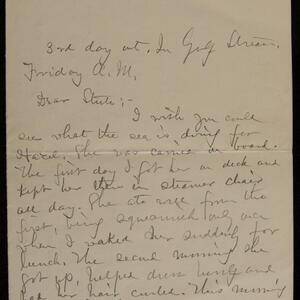 3rd day out. In Gulf Stream.
Friday A.M.
Dear Stute;-
I wish you could
see what the sea is doing for
Hazel. She was carried on board.
The first day I got her on deck and
kept her there in steamer chair
all day. She ate eggs from the
first, being squeamish only once
when I waked her suddenly for
lunch. The second morning she
got up, helped dress herself and
her hair curled. This morning